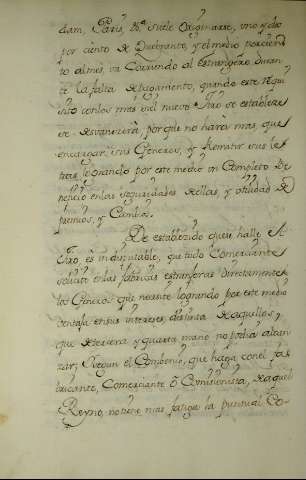 dam, Paris, &a. suele originarse, uno y dos
por ciento de Quebranto, y el medio por cien
to al mes, va Corriendo al estrangero duran
te la falta del pagamento, quando este requi
sito con los mas del nuevo Giro se establece
se desvanecerà porque no harà mas, que
encargar sus Generos, y Remitir sus le
tras, logrando por este medio un Completo Be
neficio en las seguridades de ellas, y utilidad de
premios, y Cambios.
De establecido que se halle el
Giro, es indisputable, que todo Comerciante
solicite en las fabricas estrangeras directamente
los Generos que necesite logrando por este medio
ventajas en sus intereses, distinta de aquellos,
que de tercera, y quarta mano no podria alcan
zar; segun el Combenio, que haga con el fa
bricante, Comerciante ò Comisionista, de aquel
Reyno, no tiene mas fatiga la puntual Co-